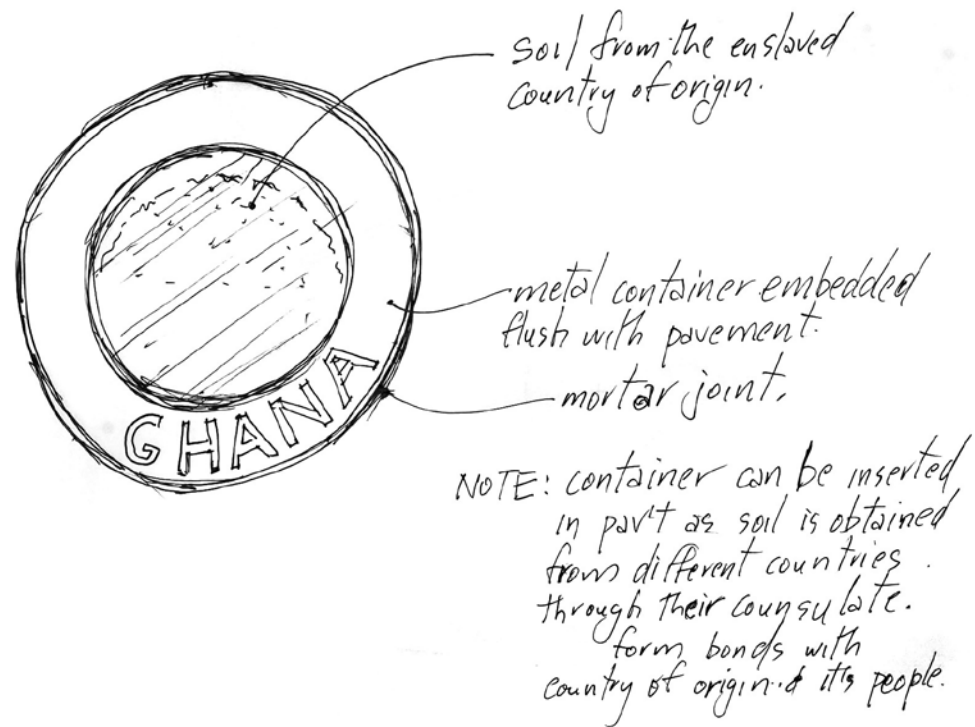 soil from the enslaved
country of origin.
metal container embedded
flush with pavement.
mortar joint.
GHANA
NOTE: container can be inserted
in pav't as soil is obtained
from different countries.
through their counsulate.
form bonds with
country of origin & it's people.